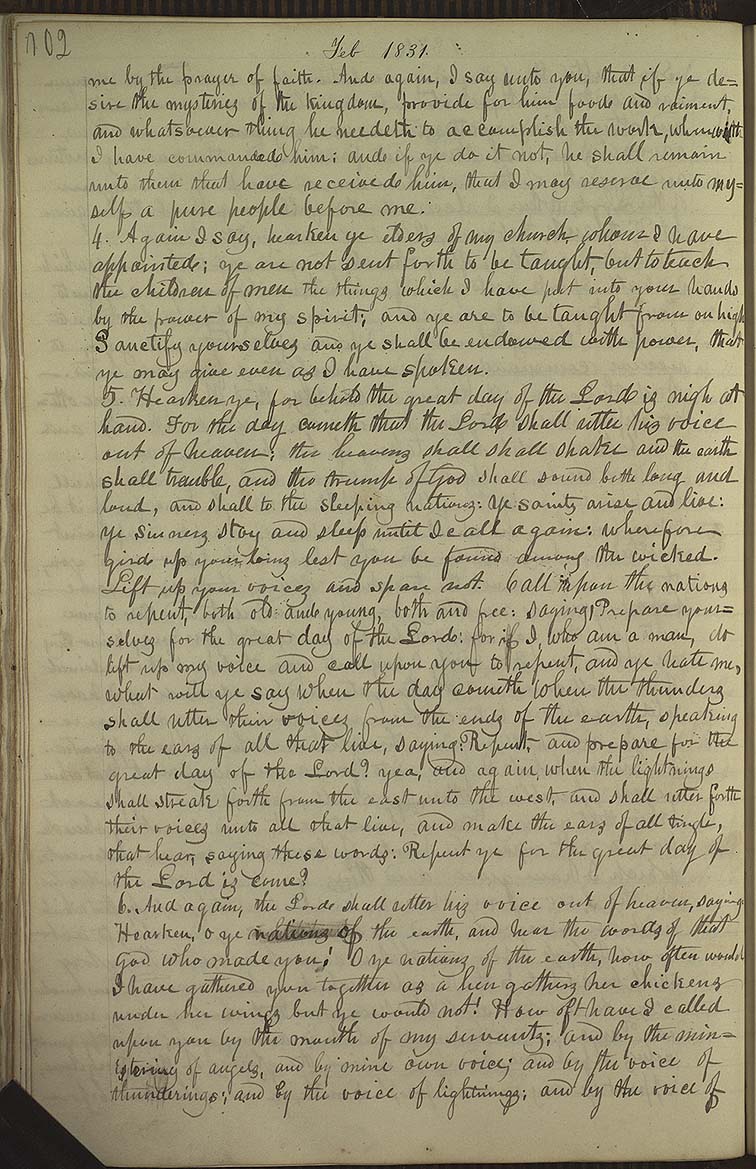 102
Feb 1831.
me by the prayer of faith. And again, I say unto you, that if ye de=
sire the mysteries of the kingdom, provide for him food and raiment,
and whatsoever thing he needeth to accomplish the work, wherewith
I have commanded him; and if ye do it not, he shall remain
unto them that have received him, that I may reserve unto my=
self a pure people before me.
4. Again I say, hearken ye elders of my church whom I have
appointed; ye are not sent forth to be taught, but to teach
the children of men the things which I have put into your hands
by the power of my spirit; and ye are to be taught from on high
Sanctify yourselves and ye shall be endowed with power, that
ye may give even as I have spoken.
5. Hearken ye, for behold the great day of the Lord is nigh at
hand. For the day cometh that the Lord shall utter his voice
out of heaven; the heavens shall shall shake and the earth
shall tremble, and the trump of God shall sound both long and
loud, and shall to the sleeping nations: Ye saints arise and live:
ye sinners stay and sleep until I call again: wherefore
gird up your loins lest you be found among the wicked.
Lift up your voices and spare not. Call upon the nations
to repent, both old and young, both and free: saying, Prepare your=
selves for the great day of the Lord: for if I, who am a man, do
lift up my voice and call upon you to repent, and ye hate me,
what will ye say when the day cometh when the thunders
shall utter their voices from the ends of the earth, speaking
to the ears of all that live, saying: Repent, and prepare for the
great day of the Lord? yea, and again, when the lightnings
shall streak forth from the east unto the west, and shall utter forth
their voices unto all that live, and make the ears of all tingle,
that hear, saying these words: Repent ye for the great day of
the Lord is come?
6. And again, the Lord shall utter his voice out of heaven, saying
Hearken, O ye nations of the earth, and hear the words of that
God who made you! O ye nations of the earth, how often would
I have gathered you together as a hen gathers her chickens
under her wings but ye would not! How oft have I called
upon you by the mouth of my servants; and by the min=
istering of angels, and by mine own voice; and by the voice of
thunderings; and by the voice of lightnings; and by the voice of